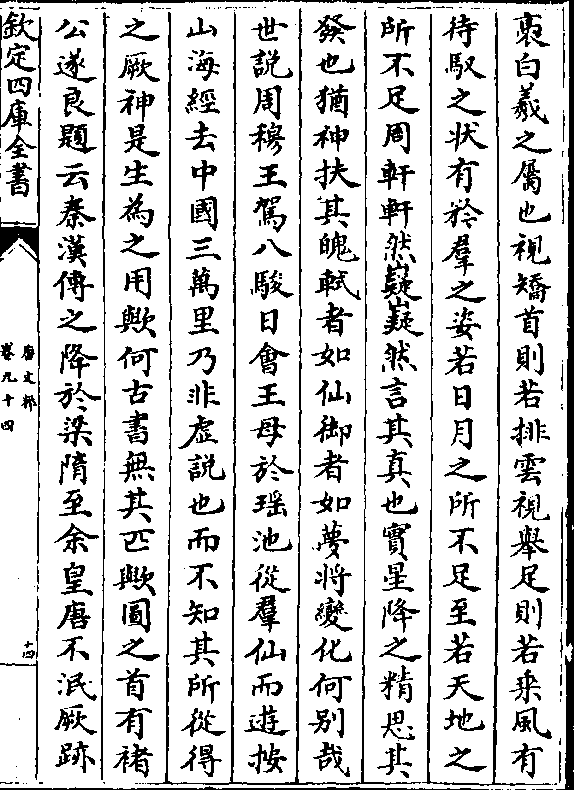 裹白羲之屬也視矯首則若排雲視舉足則若乗風有
待馭之状有矜羣之姿若日月之所不足至若天地之
所不足周軒軒然嶷嶷然言其真也實星降之精思其
發也猶神扶其魄軾者如仙御者如夢將變化何别哉
世説周穆王駕八駿日㑹王母於瑶池從羣仙而遊按
山海經去中國三萬里乃非虚説也而不知其所從得
之厥神是生為之用歟何古書無其匹歟圖之首有褚
公遂良題云秦漢傳之降於梁隋至余皇唐不泯厥跡
欽定四庫全書
唐文粹
卷九十四
十四